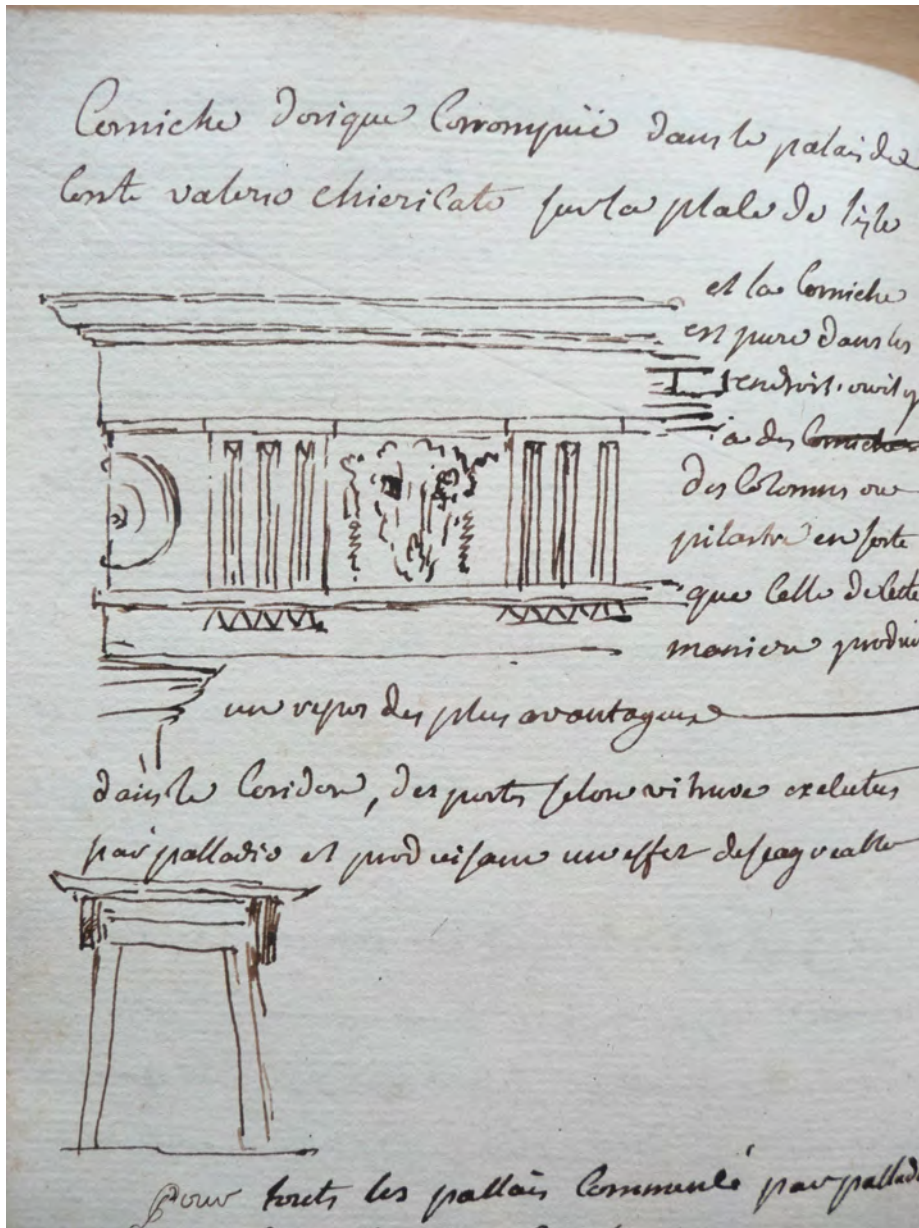 Corniche dorique Corrompuë dans le palais de
Conte valerio chiericato sur la place de l'isle
et la Corniche
est pure dans les
endroit ou il y
a des Corniche
des Colonnes ou
pilastre en sorte
que celle de cette
maniere produi
un repos des plus avantageux
dans le Coridor, des portes selon vitruve executes
par palladio et produisant un effet desagreable
Pour touts les pallais Commencé par pallad